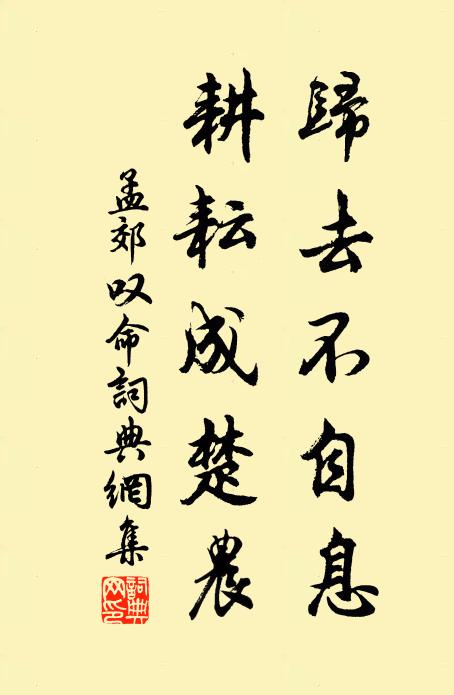 歸去不自息
耕耘成楚農
孟郊叹命詞典網集
詞典网印